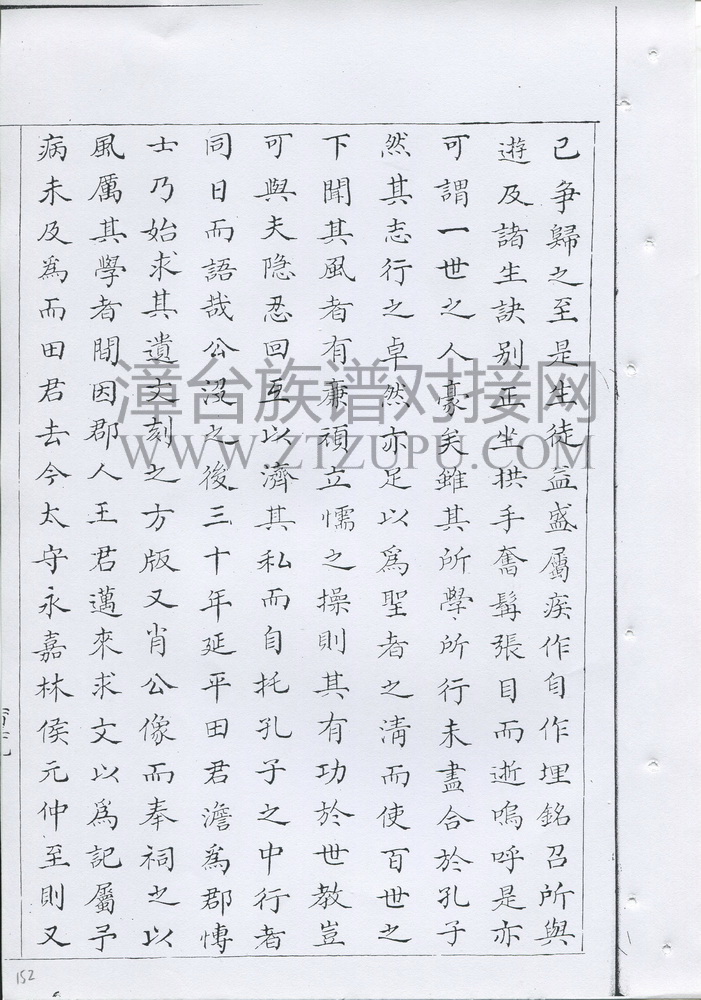 己争歸之至是生徒益盛屬疾作自作埋銘召所與
遊及諸生訣别正坐拱手奮髯張目而逝嗚呼是亦
可謂一世之人豪矣雖其所學所行未盡合於孔子
然其志行之卓然亦足以爲聖者之清而使百世之
下聞其風者有亷頑立懦之操則其有功於世教豈
可與夫隐忍回互以濟其私而自托孔子之中行者
同日而語哉公沒之後三十年延平田君澹爲郡愽
士乃始求其遺文刻之方版又肖公像而奉祠之以
風厲其學者間因郡人王君邁來求文以爲記屬予
病未及爲而田君去今太守永嘉林侯元仲至則又
152
漳台族谱对接网
WWW.ZTZUPU.COM